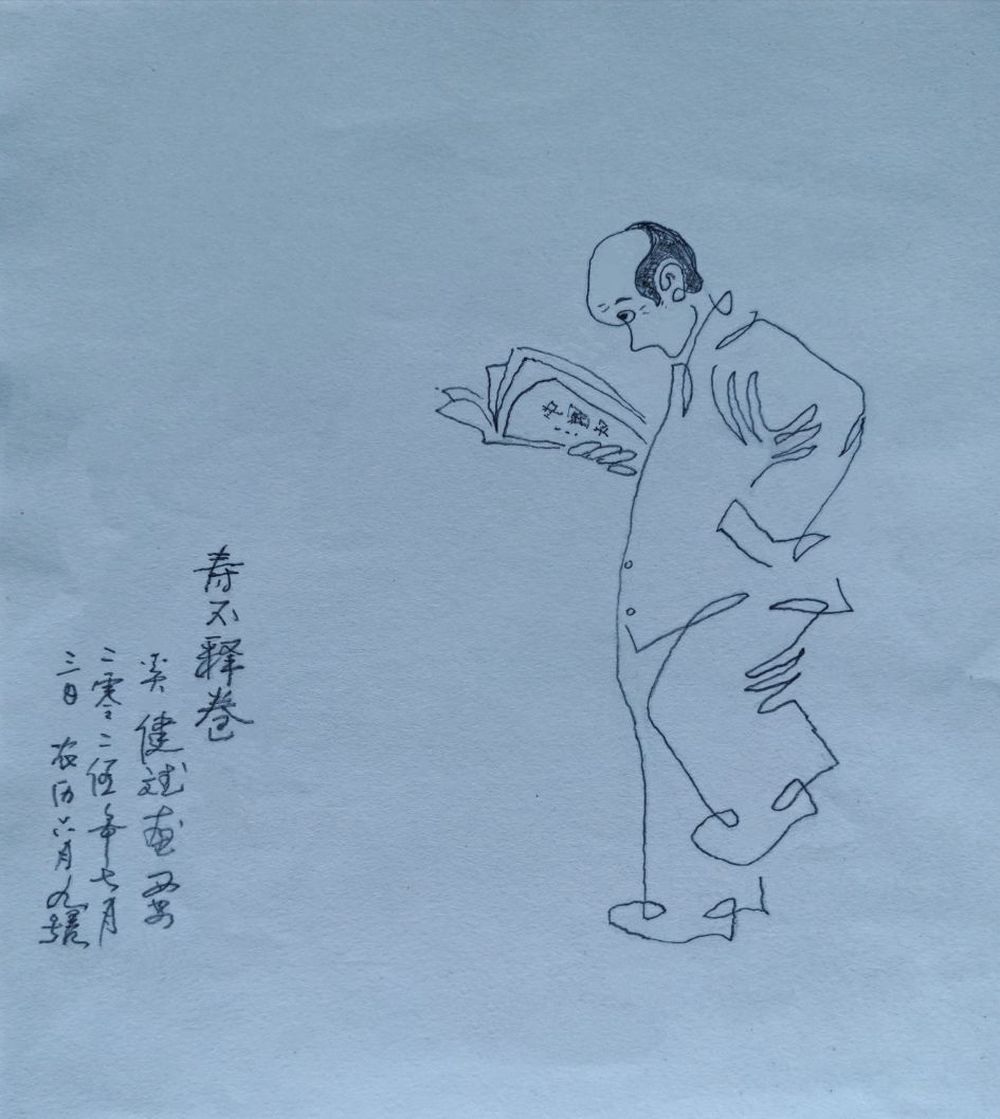 寿不释卷
吴健斌画西安
二零二伍年七月
三日 农历六月九號